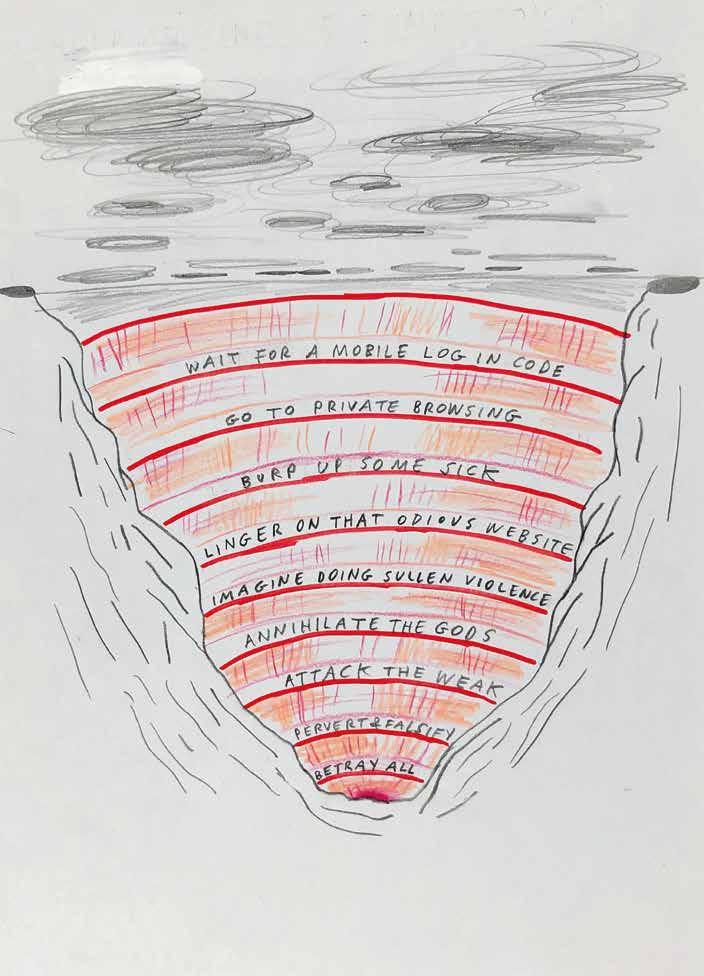 WAIT FOR A MOBILE LOG IN CODE
GO TO PRIVATE BROWSING
BURP UP SOME SICK
LINGER ON THAT ODIOUS WEBSITE
IMAGINE DOING SULLEN VIOLENCE
ANNIHILATE THE GODS
ATTACK THE WEAK
PERVERT & FALSIFY
BETRAY ALL